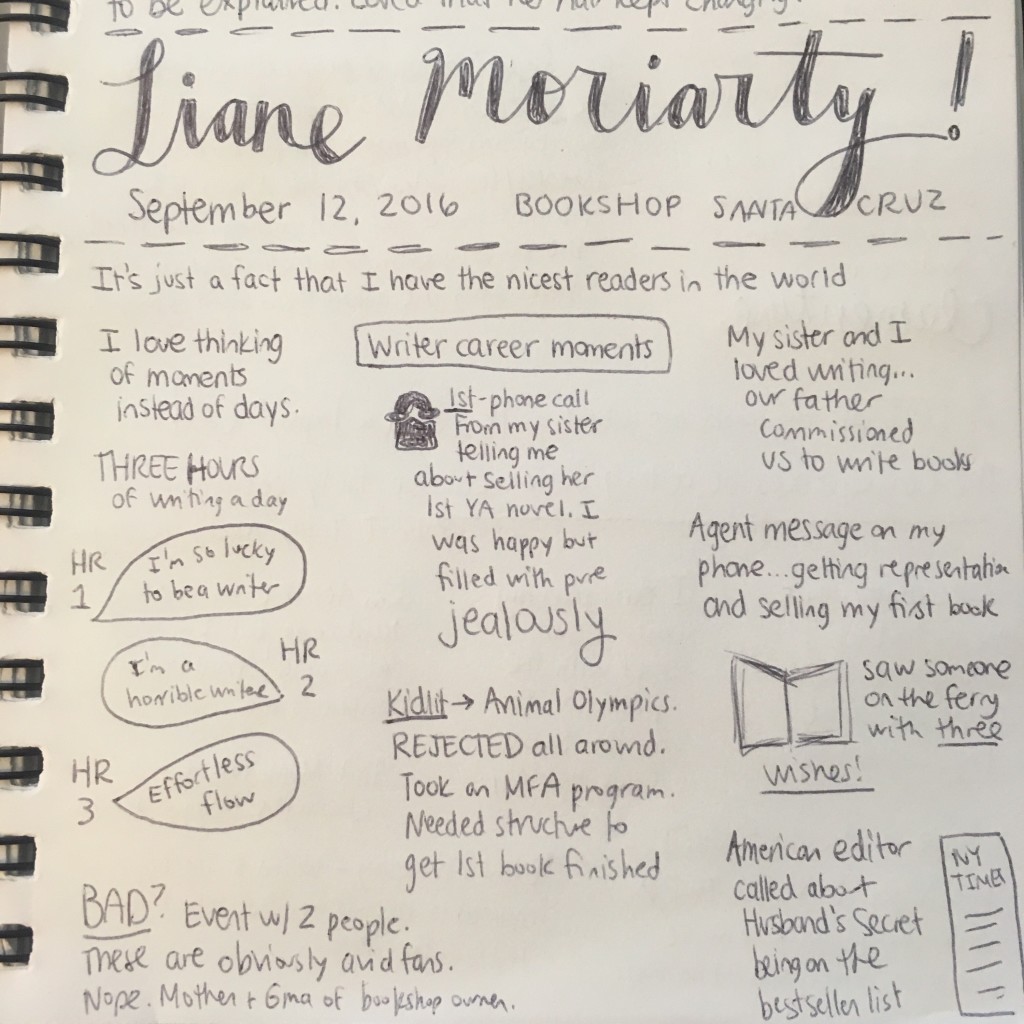 to be explained. Loved that he had kept changing.
Liane Moriarty!
September 12, 2016 BOOKSHOP SANTA CRUZ
It's just a fact that I have the nicest readers in the world
I love thinking
of moments
instead of days.
THREE HOURS
of writing a day
HR
1
I'm so lucky
to be a writer
HR
2
I'm a
horrible writer
HR
3
Effortless
flow
BAD? Event w/ 2 people.
These are obviously avid fans.
Nope. Mother + Gma of bookshop owner.
Writer career moments
1st-phone call
from my sister
telling me
about selling her
1st YA novel. I
was happy but
filled with pure
jealously
Kidlit → Animal Olympics.
REJECTED all around.
Took an MFA program.
Needed structure to
get 1st book finished
My sister and I
loved writing...
our father
commissioned
us to write books
Agent message on my
phone...getting representation
and selling my first book
saw someone
on the ferry
with three
wishes!
American editor
called about
Husband's Secret
being on the
bestseller list
NY
TIMES